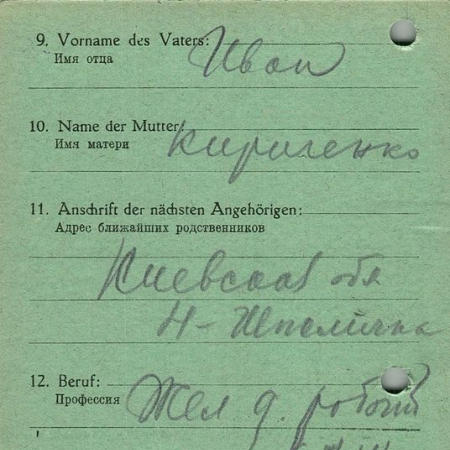 9. Vorname des Vaters: Иван
Имя отца
10. Name der Mutter: Кириченко
Имя матери
11. Anschrift der nächsten Angehörigen:
Адрес ближайших родственников
Киевская обл
Н-Шполička
12. Beruf: Жел д. рабочий
Профессия